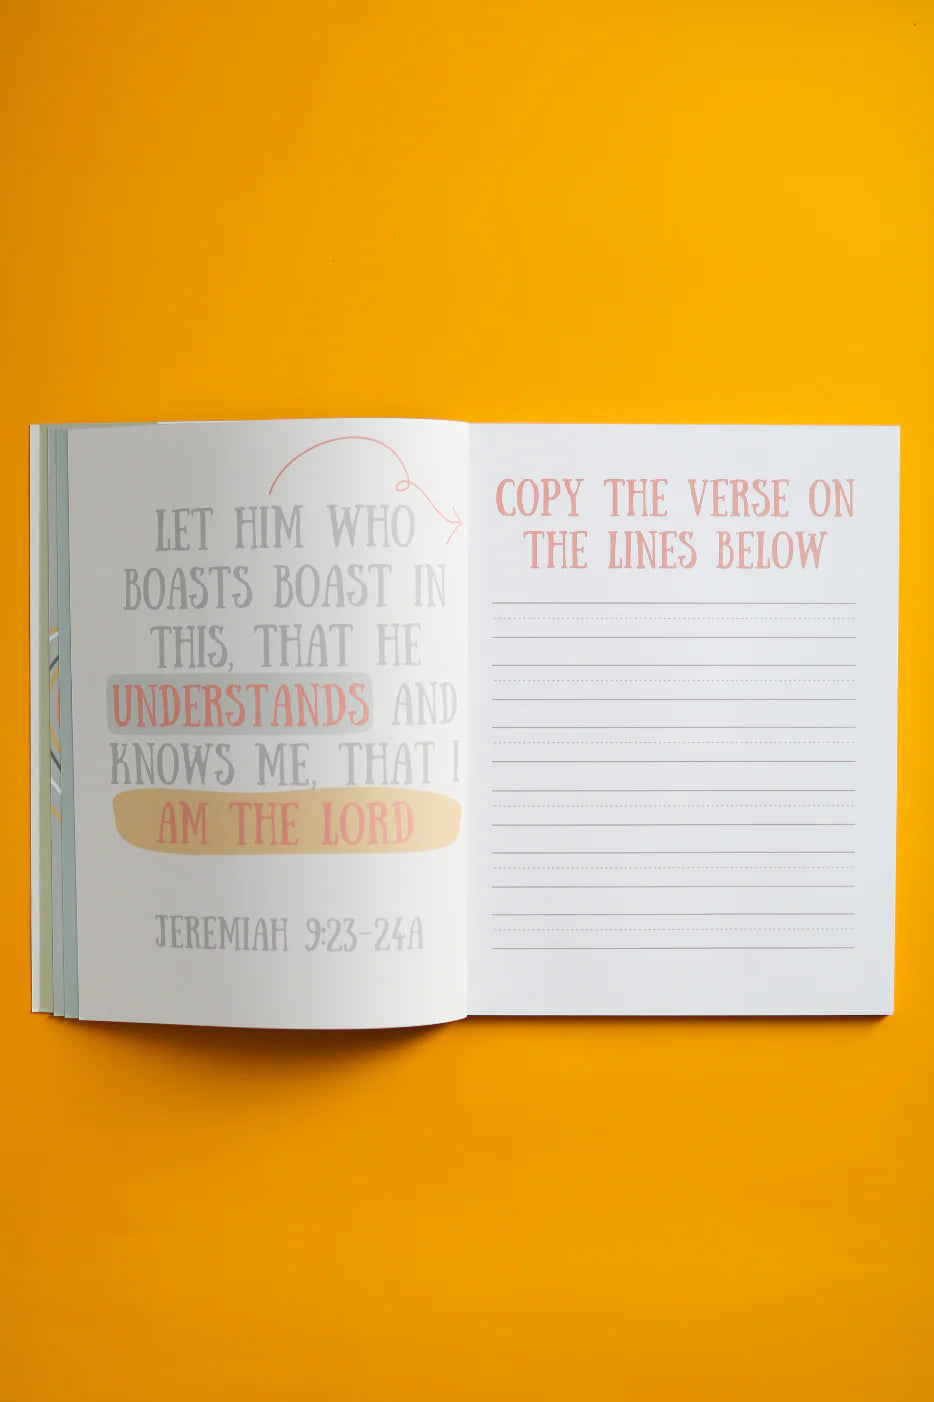 LET HIM WHO
BOASTS BOAST IN
THIS, THAT HE
UNDERSTANDS AND
KNOWS ME, THAT I
AM THE LORD.
JEREMIAH 9:23-24A
COPY THE VERSE ON
THE LINES BELOW